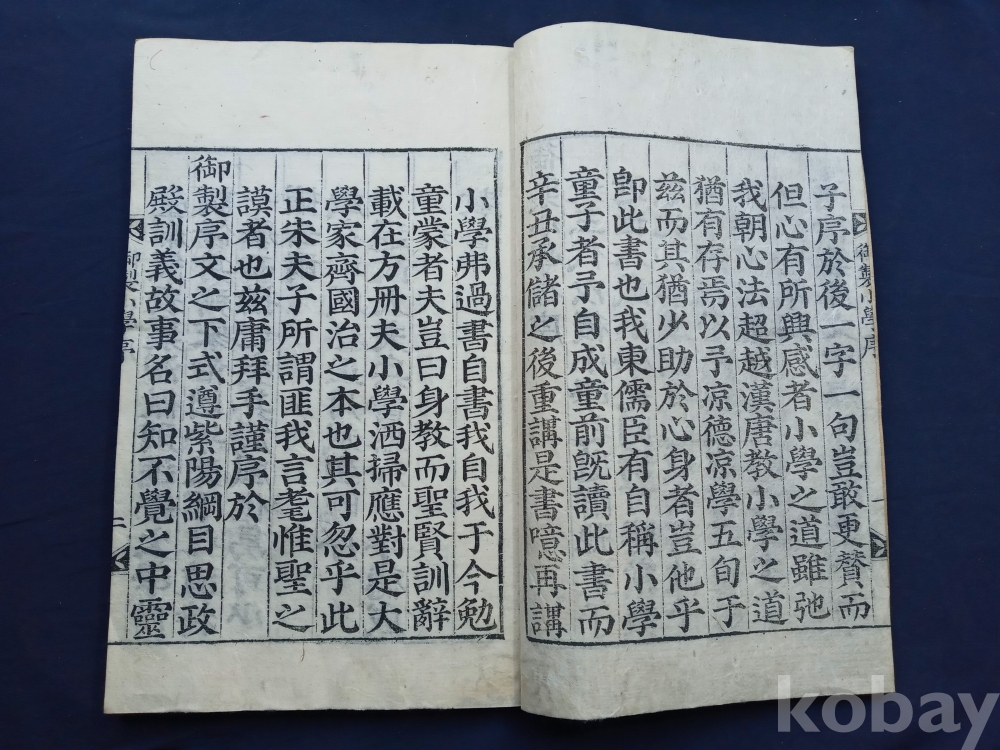 子序於後一字一句豈敢更贅而
但心有所興感者小學之道雖弛
我朝心法超越漢唐教小學之道
猶有存焉以予凉德凉學五旬于
茲而其猶少助於心身者豈他乎
卽此書也我東儒臣有自稱小學
童子者予自成童前旣讀此書而
辛丑承儲之後重講是書噫再講
御製小學序
一
小學弗過書自書我自我于今勉
童蒙者夫豈曰身教而聖賢訓辭
載在方冊夫小學洒掃應對是大
學家齊國治之本也其可忽乎此
正朱夫子所謂匪我言耄惟聖之
謨者也兹庸拜手謹序於
御製序文之下式遵紫陽綱目思政
殿訓義故事名曰知不覺之中靈
御製小學序
二
kobay